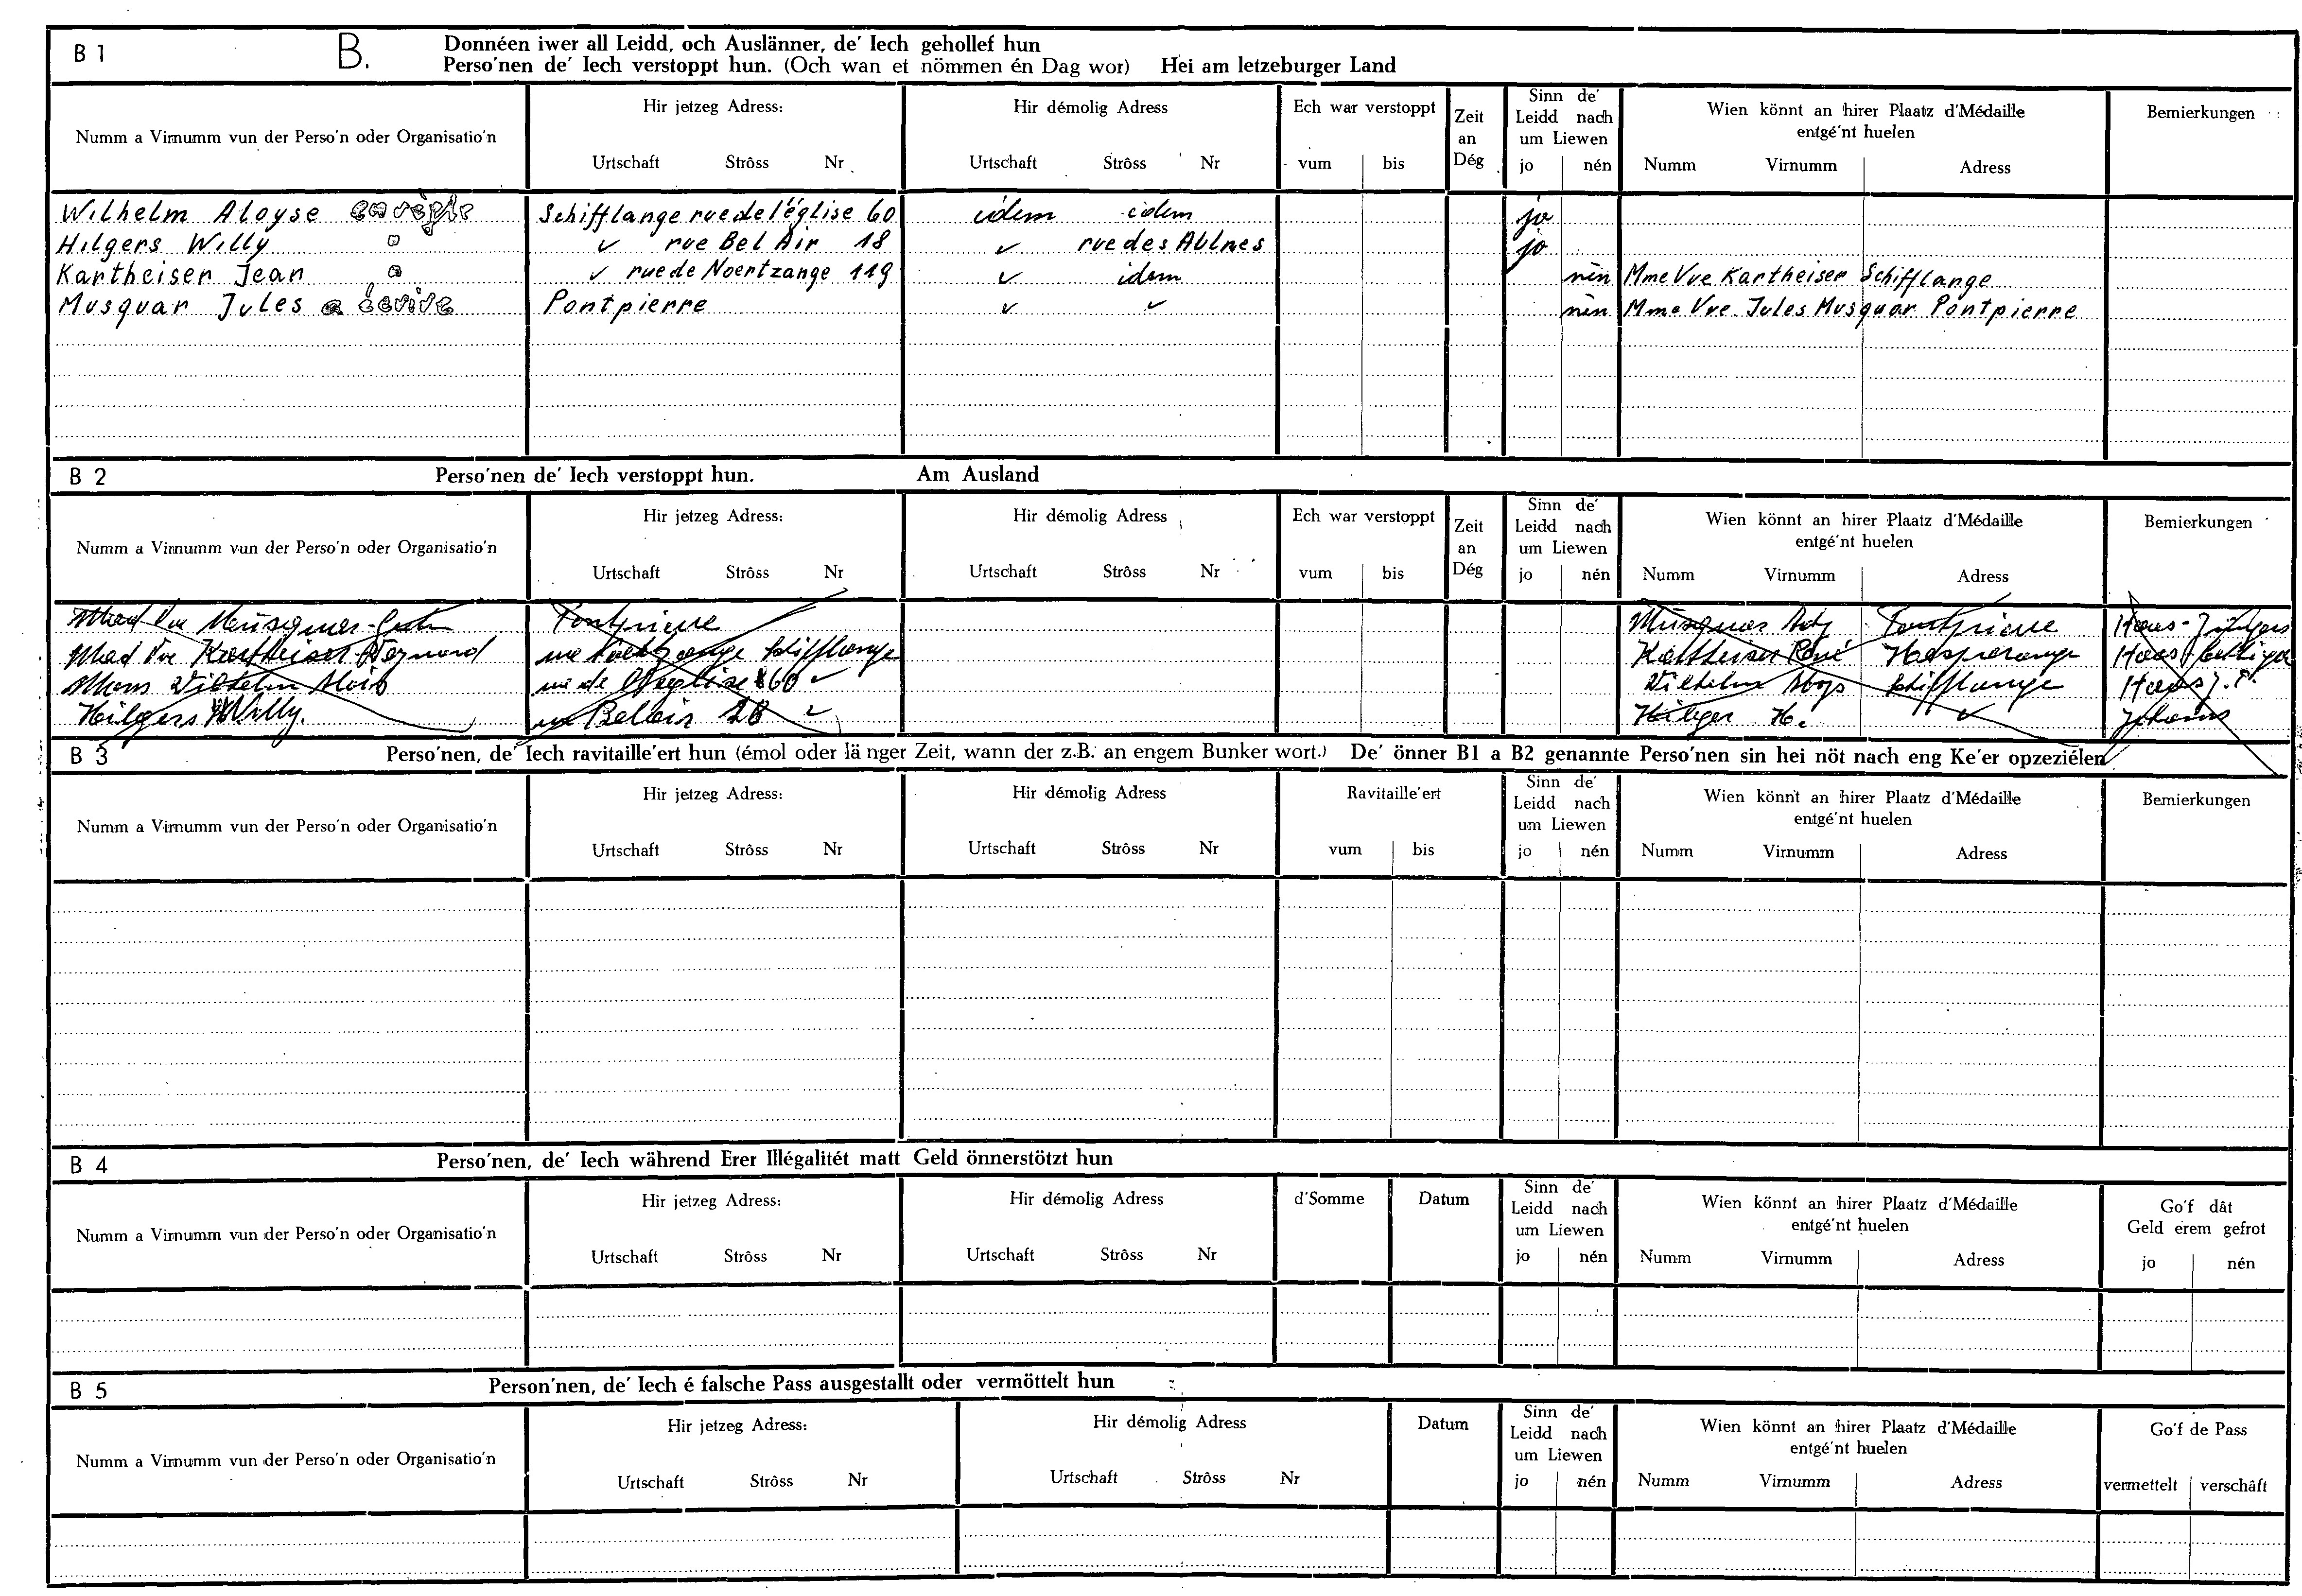 B 1 B. Donnéen iwer all Leidd, och Auslänner, de' Iech gehollef hun
Perso'nen de' Iech verstoppt hun. (Och wan et nömmen én Dag wor) Hei am letzeburger Land
Numm a Virnumm vun der Perso'n oder Organisatio'n
Hir jetzeg Adress:
Urtschaft Strôss Nr
Hir démolig Adress
Urtschaft Strôss Nr
Ech war verstoppt
vum bis
Zeit
an
Dég
Sinn de'
Leidd nach
um Liewen
jo nén
Wien könnt an hirer Plaatz d'Médaille
entgé'nt huelen
Numm Virnumm Adress
Bemierkungen
Wilhelm Aloyse Schifflange rue de l'église 60 idem idem jo
Hilgers Willy ✓ rue Bel Air 18 ✓ rue des Aulnes jo
Kartheiser Jean ✓ rue de Noertzange 119 ✓ idem nén Mme Vve Kartheiser Schifflange
Musquar Jules Pontpierre ✓ ✓ nén Mme Vve Jules Musquar Pontpierre
B 2 Perso'nen de' Iech verstoppt hun. Am Ausland
Numm a Virnumm vun der Perso'n oder Organisatio'n
Hir jetzeg Adress:
Urtschaft Strôss Nr
Hir démolig Adress
Urtschaft Strôss Nr
Ech war verstoppt
vum bis
Zeit
an
Dég
Sinn de'
Leidd nach
um Liewen
jo nén
Wien könnt an hirer Plaatz d'Médaille
entgé'nt huelen
Numm Virnumm Adress
Bemierkungen
Pontpierre Pontpierre Haas-Jungers
Kartheiser Schifflange Kartheiser René Hesperange Haas
Wilhelm Alois 60 ✓ Wilhelm Aloys Schifflange Haas J. P.
Hilgers Willy. Belair 18 ✓ Hilger H. ✓
B 3 Perso'nen, de' Iech ravitaille'ert hun (émol oder länger Zeit, wann der z.B. an engem Bunker wort.) De' önner B1 a B2 genannte Perso'nen sin hei nöt nach eng Ke'er opzeziélen
Numm a Virnumm vun der Perso'n oder Organisatio'n
Hir jetzeg Adress:
Urtschaft Strôss Nr
Hir démolig Adress
Urtschaft Strôss Nr
Ravitaille'ert
vum bis
Sinn de'
Leidd nach
um Liewen
jo nén
Wien könnt an hirer Plaatz d'Médaille
entgé'nt huelen
Numm Virnumm Adress
Bemierkungen
B 4 Perso'nen, de' Iech während Erer Illégalitét matt Geld önnerstötzt hun
Numm a Virnumm vun der Perso'n oder Organisatio'n
Hir jetzeg Adress:
Urtschaft Strôss Nr
Hir démolig Adress
Urtschaft Strôss Nr
d'Somme
Datum
Sinn de'
Leidd nach
um Liewen
jo nén
Wien könnt an hirer Plaatz d'Médaille
entgé'nt huelen
Numm Virnumm Adress
Go'f dât
Geld erem gefrot
jo nén
B 5 Person'nen, de' Iech é falsche Pass ausgestallt oder vermöttelt hun
Numm a Virnumm vun der Perso'n oder Organisatio'n
Hir jetzeg Adress:
Urtschaft Strôss Nr
Hir démolig Adress
Urtschaft Strôss Nr
Datum
Sinn de'
Leidd nach
um Liewen
jo nén
Wien könnt an hirer Plaatz d'Médaille
entgé'nt huelen
Numm Virnumm Adress
Go'f de Pass
vermettelt verschâft